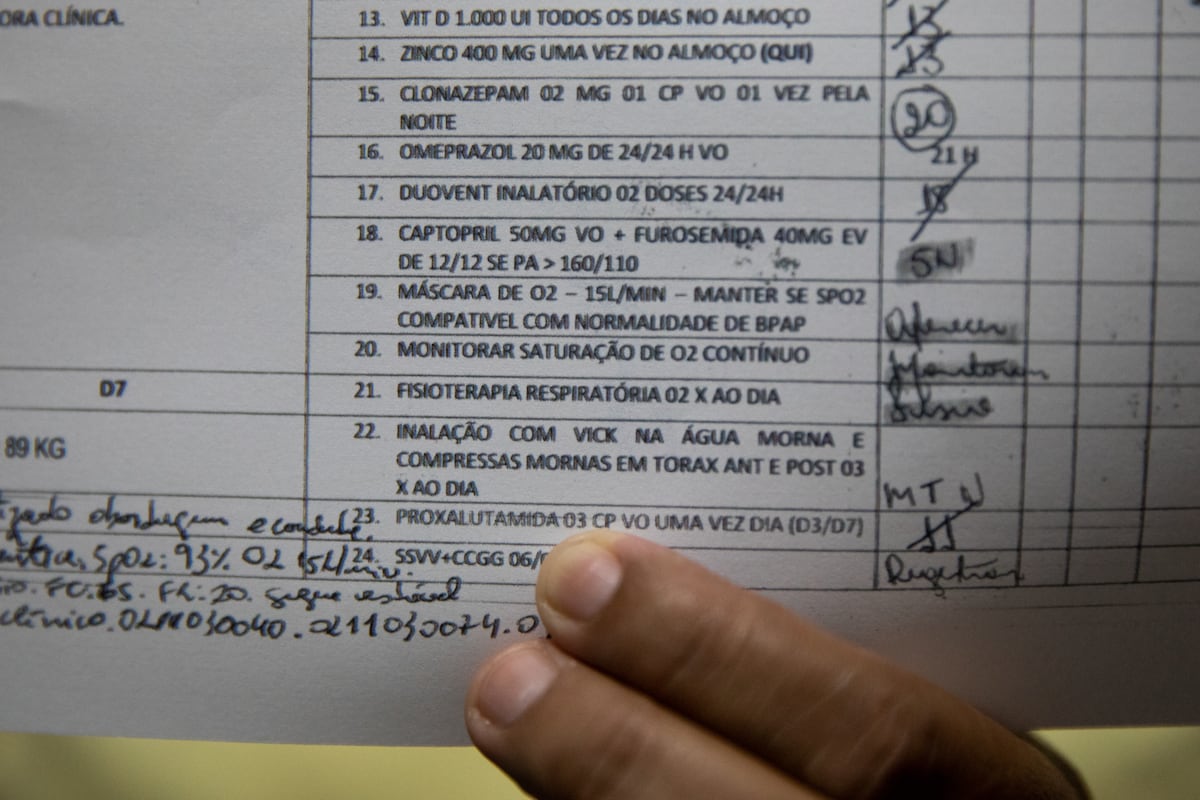 ORA CLÍNICA.
13. VIT D 1.000 UI TODOS OS DIAS NO ALMOÇO
13
14. ZINCO 400 MG UMA VEZ NO ALMOÇO (QUI)
13
15. CLONAZEPAM 02 MG 01 CP VO 01 VEZ PELA
NOITE
20
16. OMEPRAZOL 20 MG DE 24/24 H VO
21 H
17. DUOVENT INALATÓRIO 02 DOSES 24/24H
18
18. CAPTOPRIL 50MG VO + FUROSEMIDA 40MG EV
DE 12/12 SE PA > 160/110
SN
19. MÁSCARA DE O2 – 15L/MIN – MANTER SE SPO2
COMPATIVEL COM NORMALIDADE DE BPAP
20. MONITORAR SATURAÇÃO DE O2 CONTÍNUO
D7
21. FISIOTERAPIA RESPIRATÓRIA 02 X AO DIA
89 KG
22. INALAÇÃO COM VICK NA ÁGUA MORNA E
COMPRESSAS MORNAS EM TORAX ANT E POST 03
X AO DIA
MT N
23. PROXALUTAMIDA 03 CP VO UMA VEZ DIA (D3/D7)
11
24. SSVV+CCGG 06/
SpO2: 93% O2 15L/min.
FR: 20. segue estável
clínico.0211030040.0211030074.0